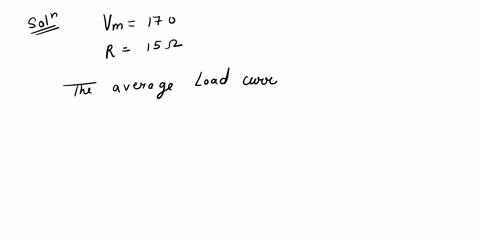 Solⁿ
Vm = 170
R = 15Ω
The average Load curr